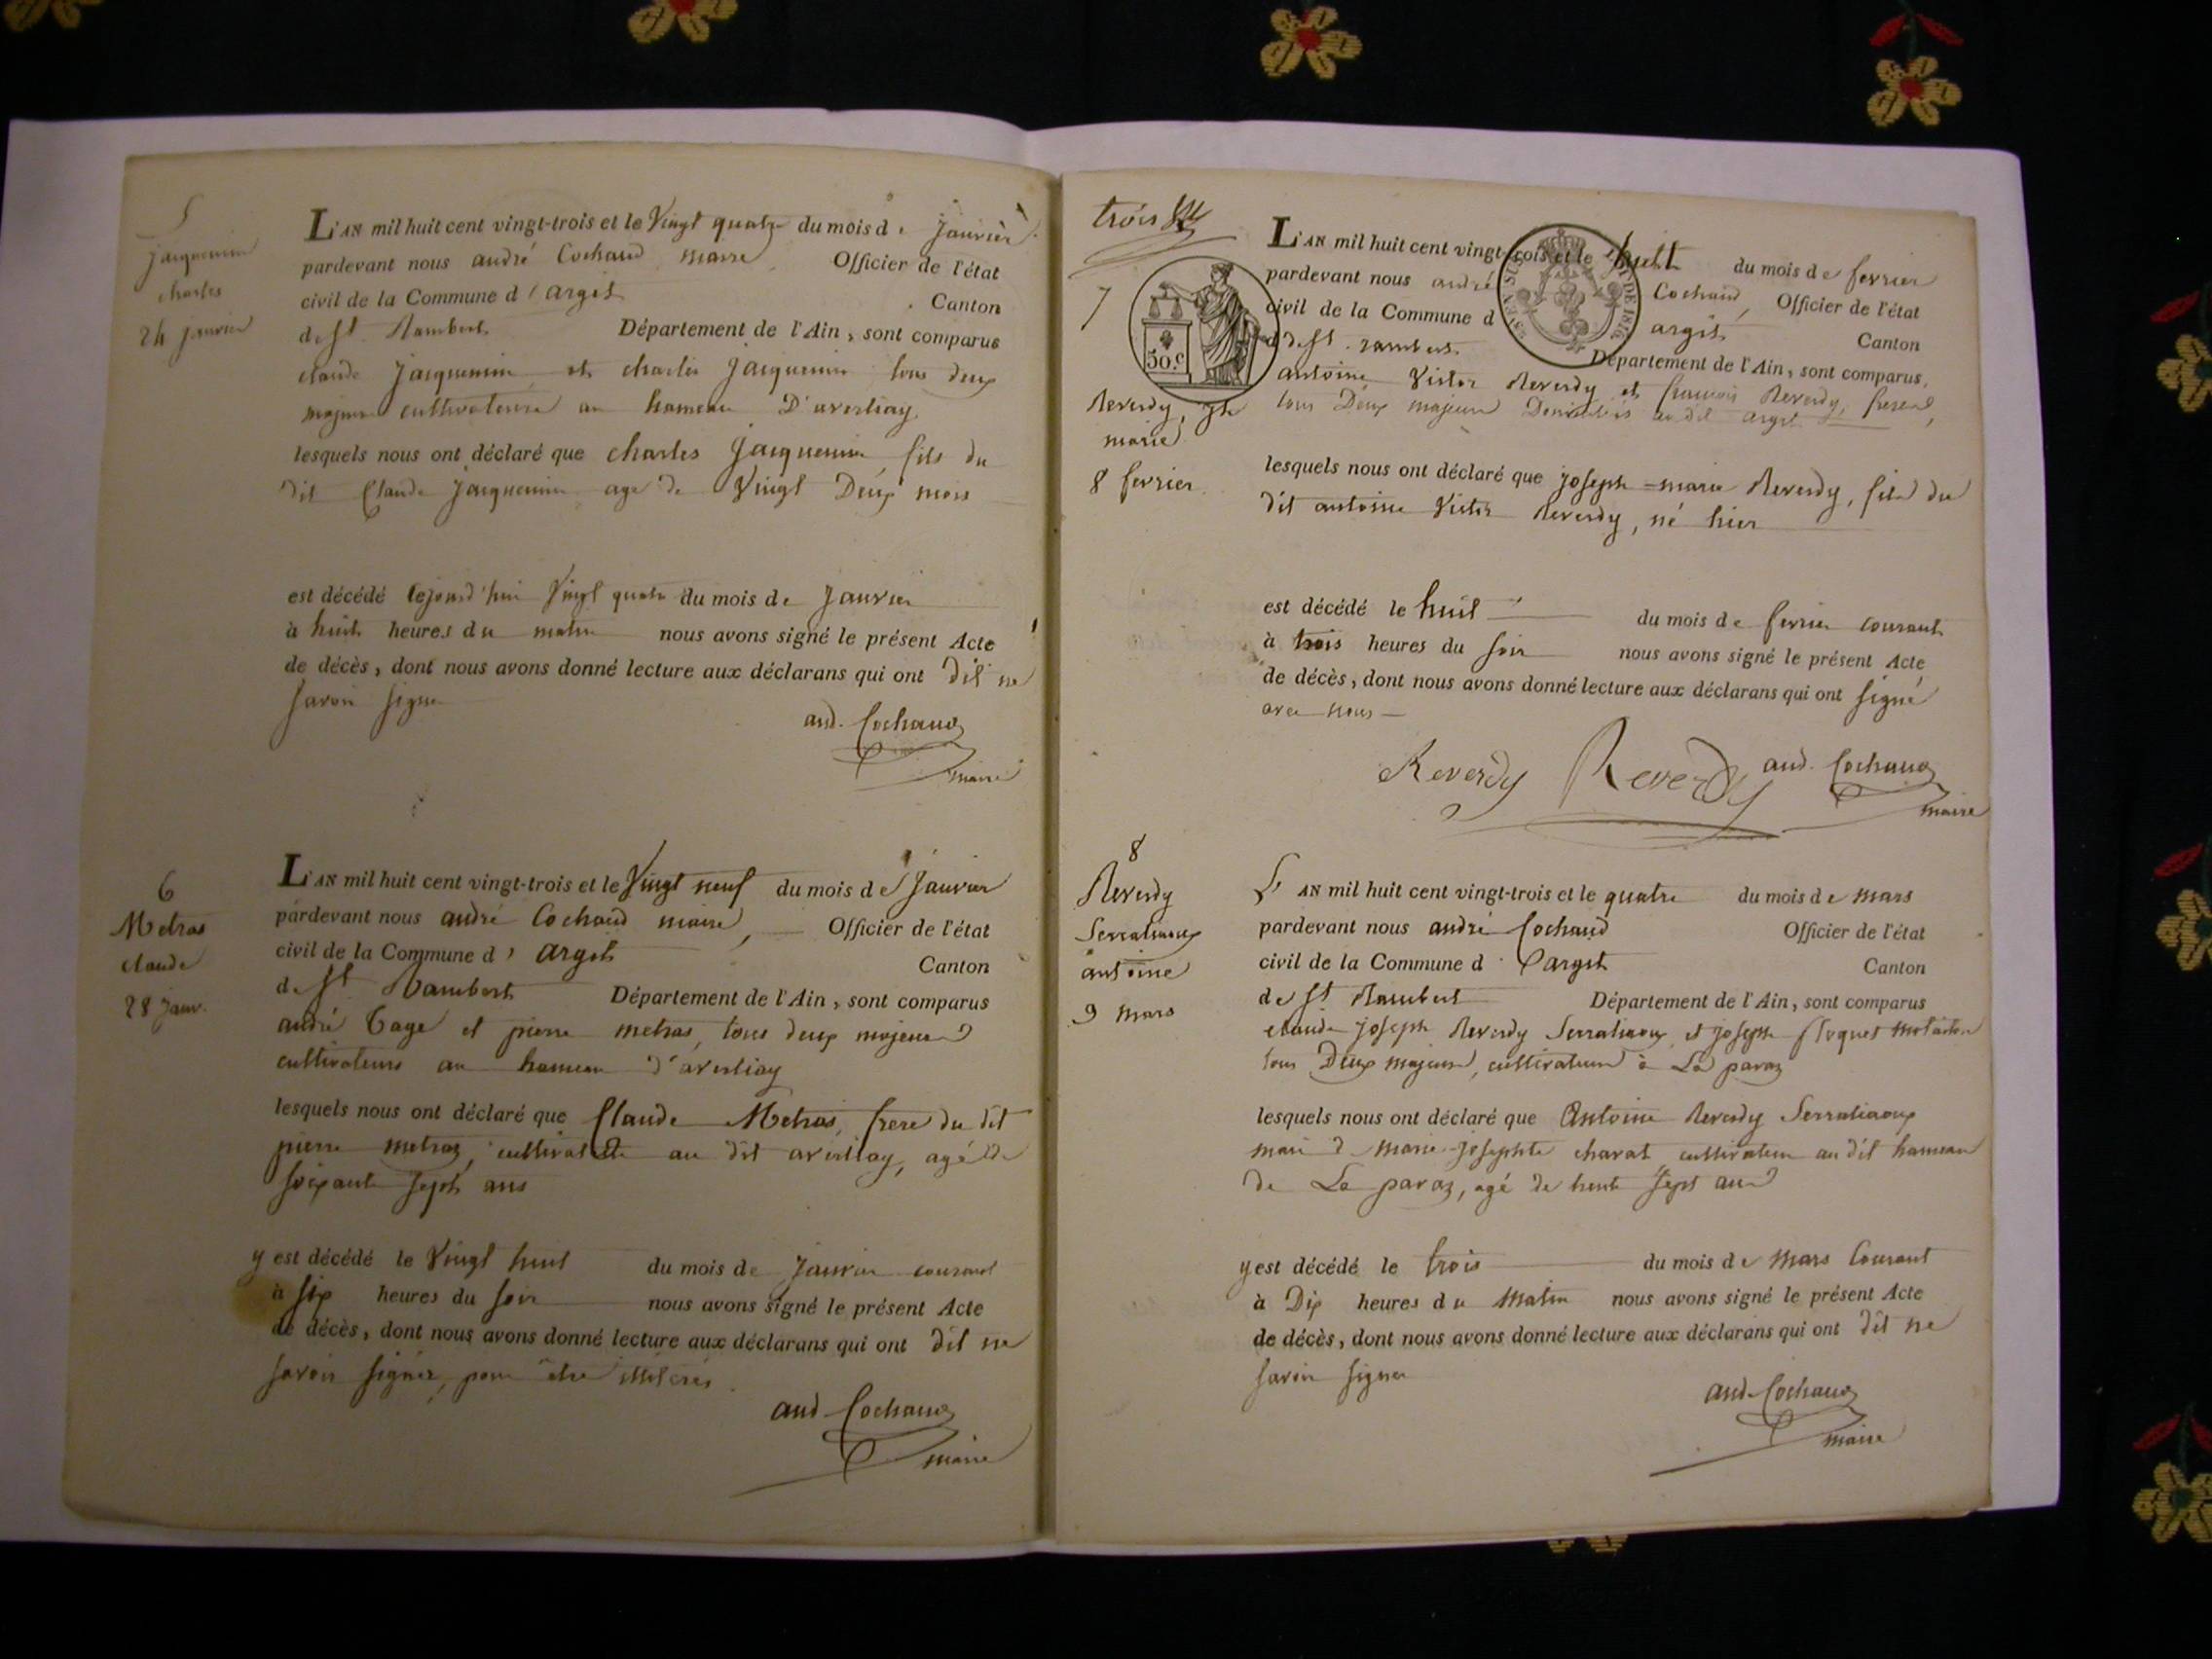 5
Jacquemin
charles
24 janvier
L'AN mil huit cent vingt-trois et le Vingt quatre du mois de Janvier
pardevant nous andré Cochaud maire Officier de l'état
civil de la Commune d'argis
Canton
de St. Rambert Département de l'Ain, sont comparus
claude Jacquemin et charles Jacquemin tous deux
majeurs cultivateurs au hameau D'averliay
lesquels nous ont déclaré que charles Jacquemin, fils du
dit Claude Jacquemin age de Vingt Deux mois
est décédé cejourd'hui Vingt quatre du mois de Janvier
à huit heures du matin nous avons signé le présent Acte
de décès, dont nous avons donné lecture aux déclarans qui ont dit ne
savoir signer
and. Cochaud
maire
6
Metras
claude
28 janv.
L'AN mil huit cent vingt-trois et le Vingt neuf du mois de Janvier
pardevant nous andré Cochaud maire, Officier de l'état
civil de la Commune d'argis
Canton
de St. Rambert Département de l'Ain, sont comparus
andré Cage et pierre metras, tous deux majeurs
cultivateurs au hameau d'averliay
lesquels nous ont déclaré que Claude Metras, frere du dit
pierre metras, au dit averliay, agé de
soixante sept ans
y est décédé le Vingt huit du mois de Janvier courant
à six heures du soir nous avons signé le présent Acte
de décès, dont nous avons donné lecture aux déclarans qui ont dit ne
savoir signer, pour être
and Cochaud
maire
trois
7
50 c.
DE 1816
Reverdy, jh
marie
8 fevrier
L'AN mil huit cent vingt-trois et le huit du mois de fevrier
pardevant nous andré Cochaud, Officier de l'état
civil de la Commune d argis
Canton
de St. rambert Département de l'Ain, sont comparus,
antoine Victor Reverdy et francois Reverdy, freres,
tous Deux majeurs Domiciliés audit argis
lesquels nous ont déclaré que joseph-marie Reverdy, fils du
dit antoine Victor Reverdy, né hier
est décédé le huit du mois de fevrier courant
à trois heures du soir nous avons signé le présent Acte
de décès, dont nous avons donné lecture aux déclarans qui ont signé
avec nous
Reverdy Reverdy and. Cochaud
maire
8
Reverdy
antoine
9 mars
L'AN mil huit cent vingt-trois et le quatre du mois de mars
pardevant nous andré Cochaud Officier de l'état
civil de la Commune d'argis
Canton
de St Rambert Département de l'Ain, sont comparus
claude joseph Reverdy et joseph
tous Deux majeurs, cultivateurs à La paraz
lesquels nous ont déclaré que Antoine Reverdy
mari de marie-josephte charat cultivateur au dit hameau
de La paraz, agé de trente sept ans
y est décédé le trois du mois de mars Courant
à Dix heures du Matin nous avons signé le présent Acte
de décès, dont nous avons donné lecture aux déclarans qui ont dit ne
savoir signer
and. Cochaud
maire